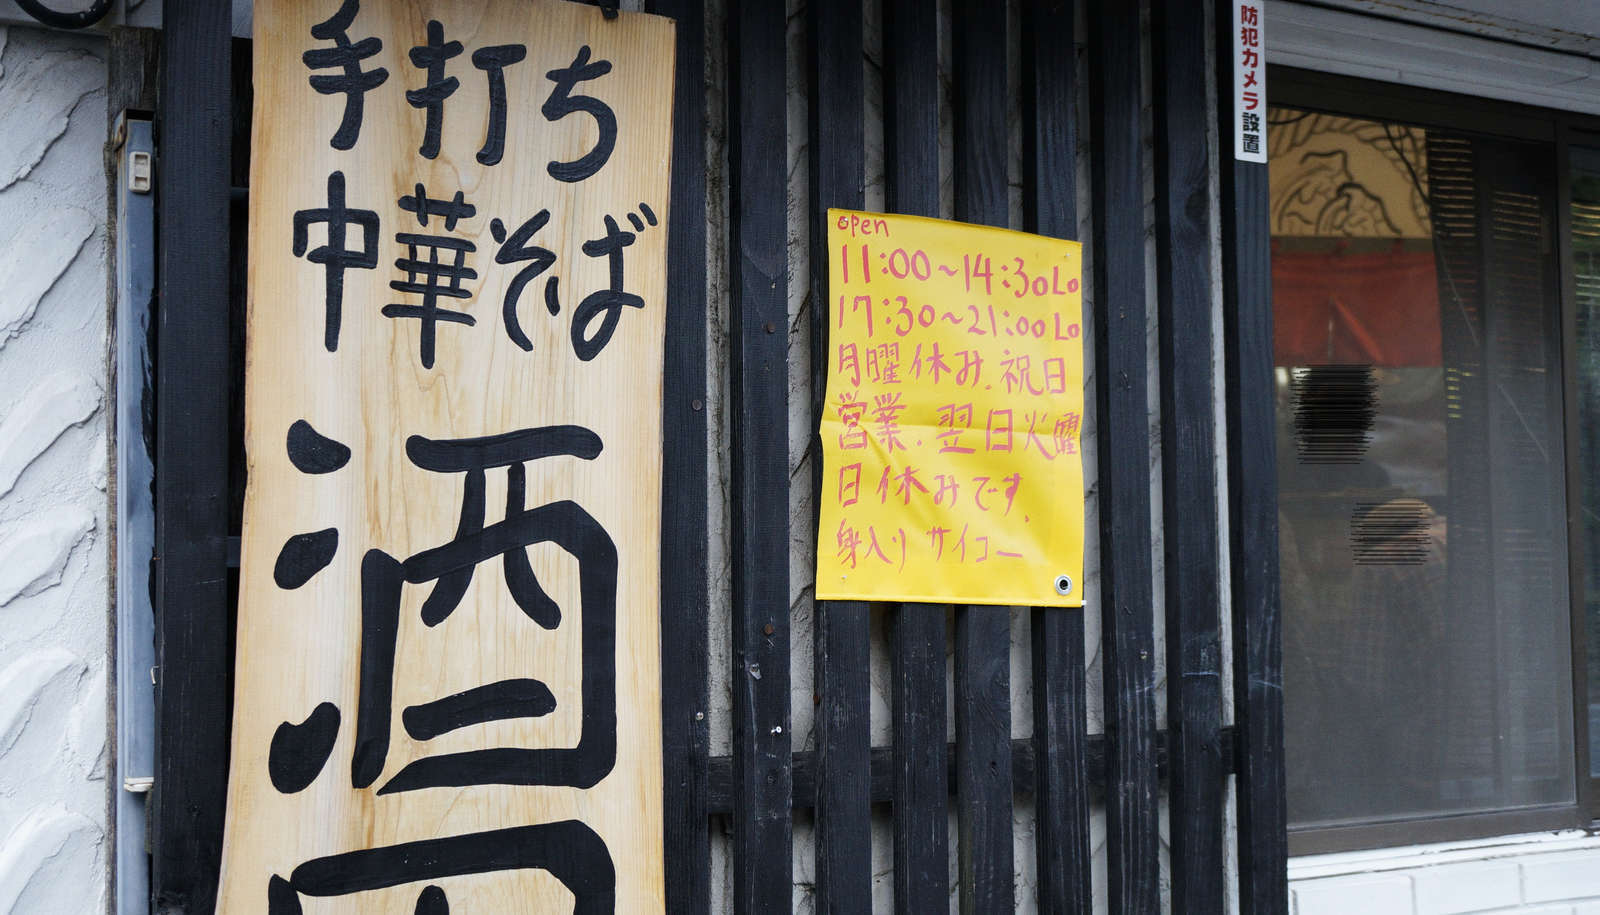 手打ち
中華そば
酒
open
11:00~14:30Lo
17:30~21:00Lo
月曜休み.祝日
営業.翌日火曜
日休みです.
身入りサイコー
防犯カメラ設置